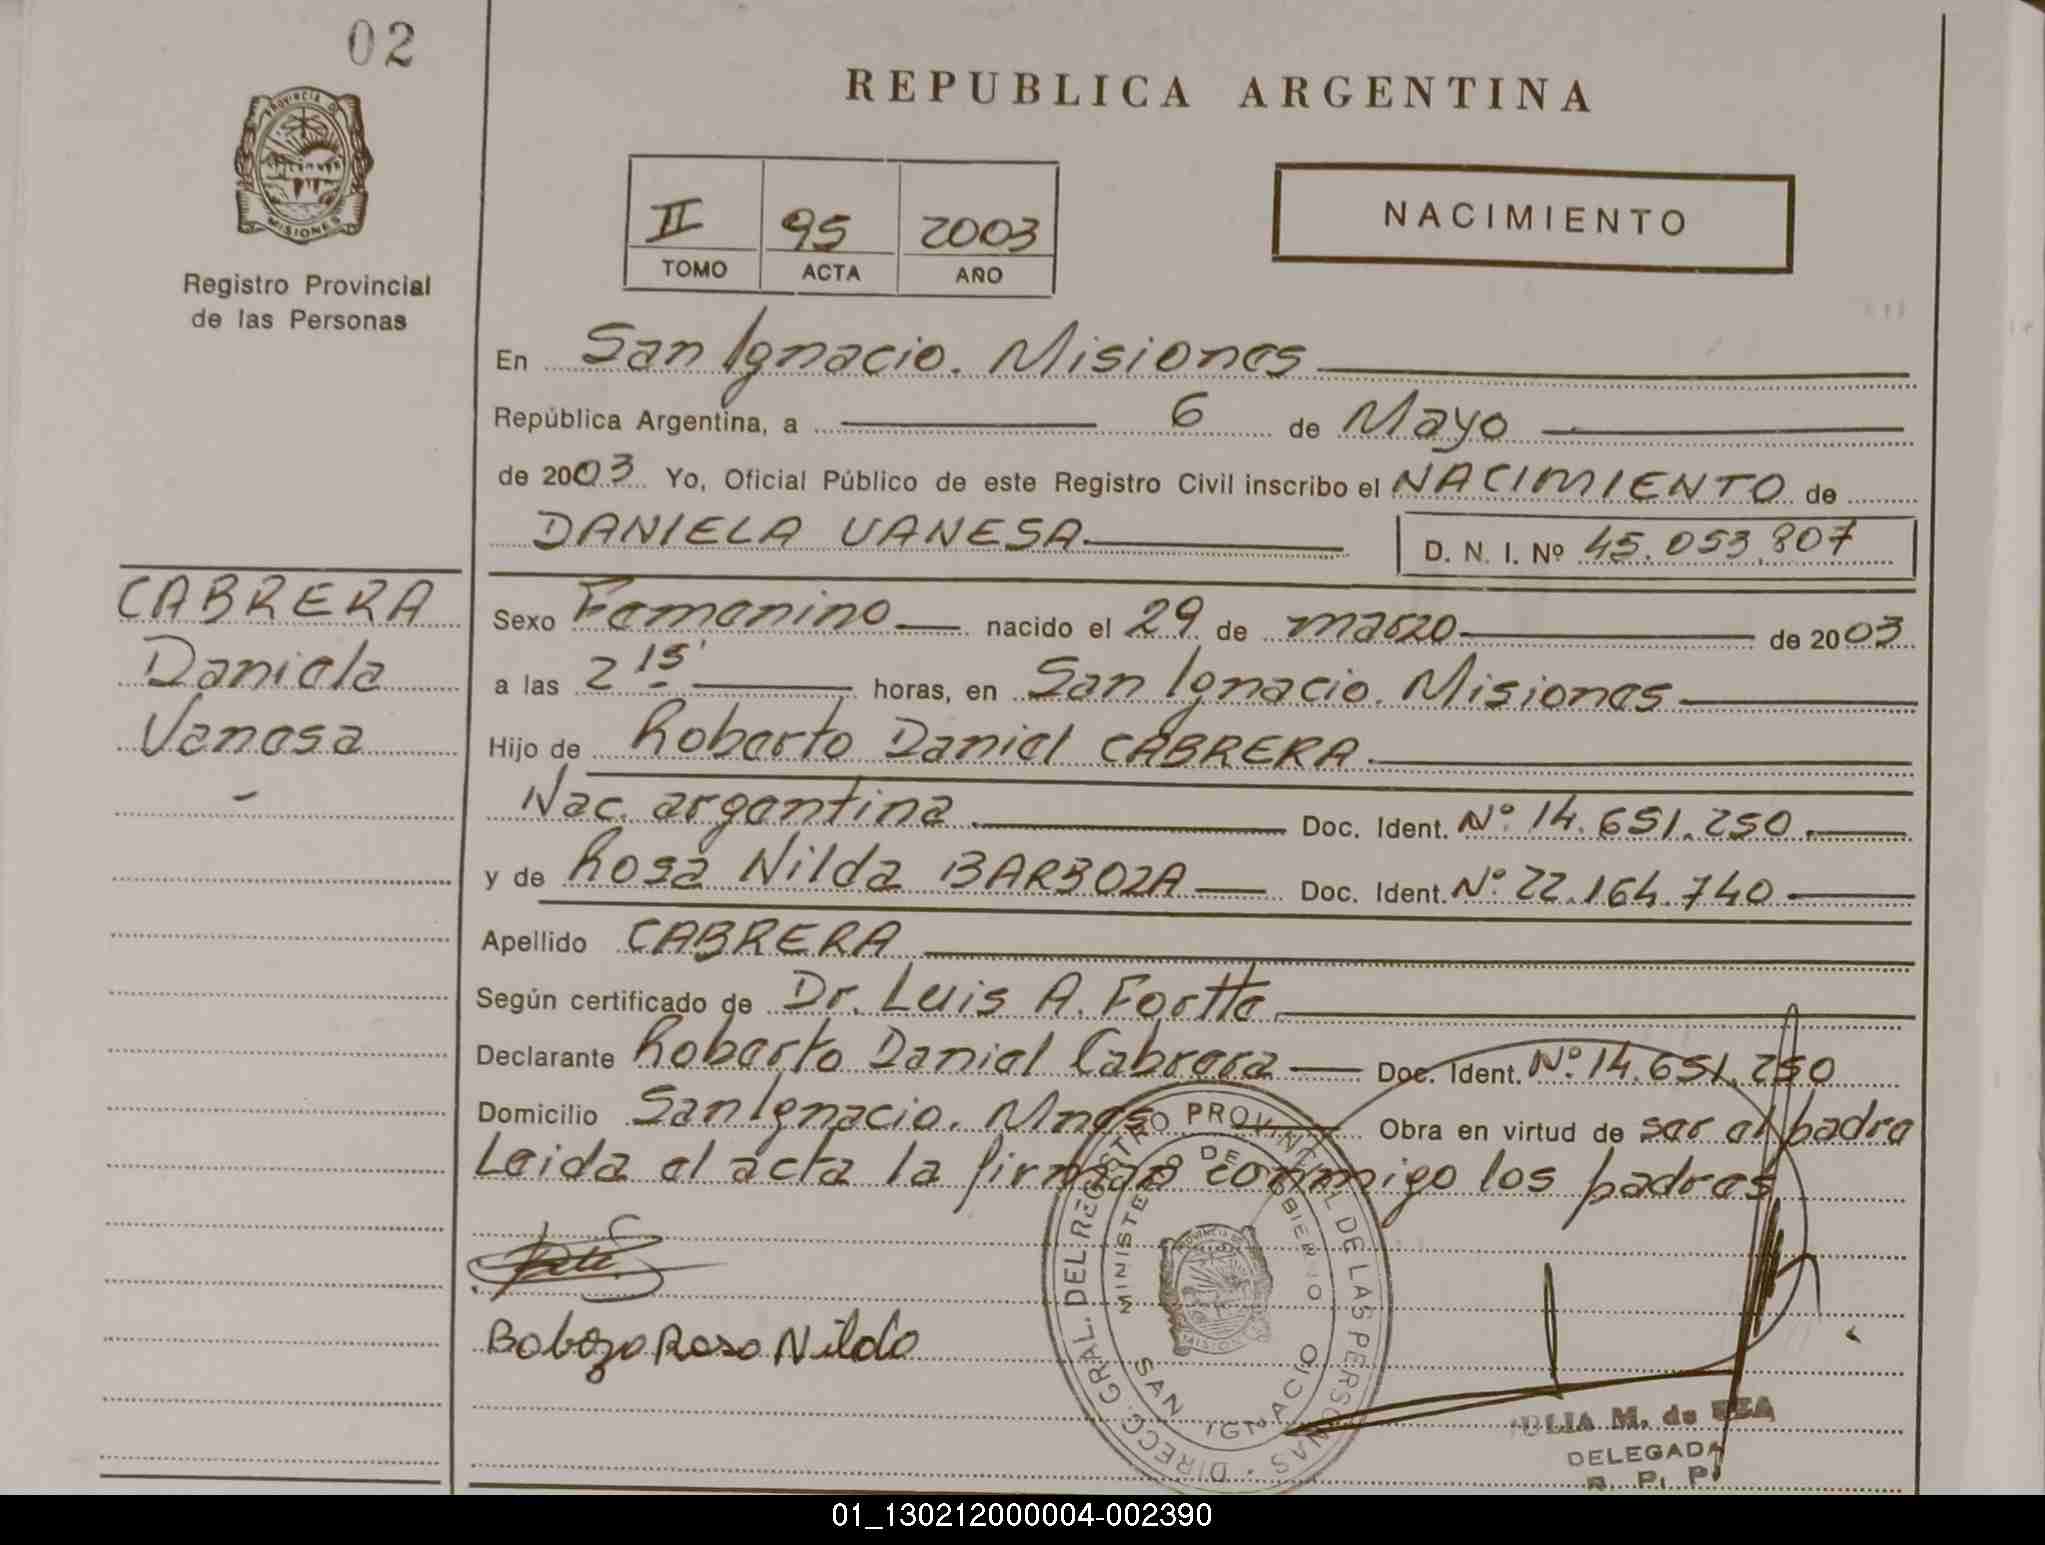 02
REPUBLICA ARGENTINA
PROVINCIA DE
MISIONES
Registro Provincial
de las Personas
II 95 2003
TOMO ACTA AÑO
NACIMIENTO
En San Ignacio. Misiones
República Argentina, a 6 de Mayo
de 2003 Yo, Oficial Público de este Registro Civil inscribo el NACIMIENTO de
DANIELA VANESA D. N. I. Nº 45.053.807
CABRERA
Daniela
Vanesa
Sexo Femenino nacido el 29 de marzo de 2003
a las 2 15' horas, en San Ignacio. Misiones
Hijo de Roberto Daniel CABRERA
Nac. argentina Doc. Ident. Nº 14.651.250
y de Rosa Nilda BARBOZA Doc. Ident. Nº 22.164.740
Apellido CABRERA
Según certificado de Dr. Luis A.
Declarante Roberto Daniel Cabrera Doc. Ident. Nº 14.651.250
Domicilio San Ignacio. Mnes Obra en virtud de ser el padre
Leida el acta la firman conmigo los padres
Bobozo Rosa Nilda
DIRECC. GRAL. DEL REGISTRO PROVINCIAL DE LAS PERSONAS
MINISTERIO DE GOBIERNO
SAN IGNACIO
M. de
DELEGADA
R. P. P.
01_130212000004-002390